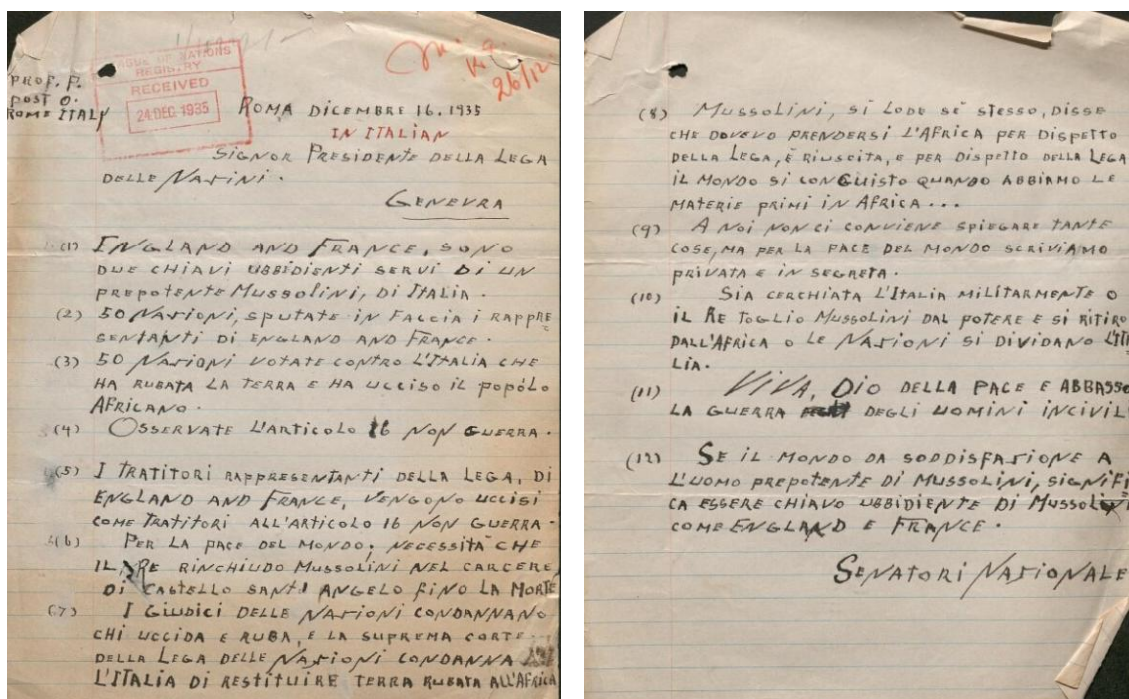 LEAGUE OF NATIONS
REGISTRY
RECEIVED
24 DEC 1935
26/12
PROF. P.
POST O.
ROME ITALY
ROMA DICEMBRE 16. 1935
IN ITALIAN
SIGNOR PRESIDENTE DELLA LEGA
DELLE NASINI.
GENEVRA
(1) ENGLAND AND FRANCE, SONO
DUE CHIAVI UBBIDIENTI SERVI DI UN
PREPOTENTE MUSSOLINI, DI ITALIA.
(2) 50 NASIONI, SPUTATE IN FACCIA I RAPPRE
SENTANTI DI ENGLAND AND FRANCE.
(3) 50 NASIONI VOTATE CONTRO L'ITALIA CHE
HA RUBATA LA TERRA E HA UCCISO IL POPÓLO
AFRICANO.
(4) OSSERVATE L'ARTICOLO 16 NON GUERRA.
(5) I TRATITORI RAPPRESENTANTI DELLA LEGA, DI
ENGLAND AND FRANCE, VENGONO UCCISI
COME TRATITORI ALL'ARTICOLO 16 NON GUERRA.
(6) PER LA PACE DEL MONDO, NECESSITÀ CHE
IL RE RINCHIUDO MUSSOLINI NEL CARCERE
DI CASTELLO SANTI ANGELO FINO LA MORTE
(7) I GIUDICI DELLE NASIONI CONDANNANO
CHI UCCIDA E RUBA, E LA SUPREMA CORTE
DELLA LEGA DELLE NASIONI CONDANNA
L'ITALIA DI RESTITUIRE TERRA RUBATA ALL'AFRICA
(8) MUSSOLINI, SI LODE SÉ STESSO, DISSE
CHE DOVEVO PRENDERSI L'AFRICA PER DISPETTO
DELLA LEGA, È RIUSCITA, E PER DISPETTO DELLA LEGA
IL MONDO SI CONGUISTO QUANDO ABBIAMO LE
MATERIE PRIMI IN AFRICA...
(9) A NOI NON CI CONVIENE SPIEGARE TANTE
COSE, MA PER LA PACE DEL MONDO SCRIVIAMO
PRIVATA E IN SEGRETA.
(10) SIA CERCHIATA L'ITALIA MILITARMENTE O
IL RE TOGLIO MUSSOLINI DAL POTERE E SI RITIRO
DALL'AFRICA O LE NASIONI SI DIVIDANO L'ITA
LIA.
(11) VIVA, DIO DELLA PACE E ABBASSO
LA GUERRA DEGLI UOMINI INCIVIL
(12) SE IL MONDO DA SODDISFASIONE A
L'UOMO PREPOTENTE DI MUSSOLINI, SIGNIFI
CA ESSERE CHIAVO UBBIDIENTE DI MUSSOLINI
COME ENGLAND E FRANCE.
SENATORI NASIONALE